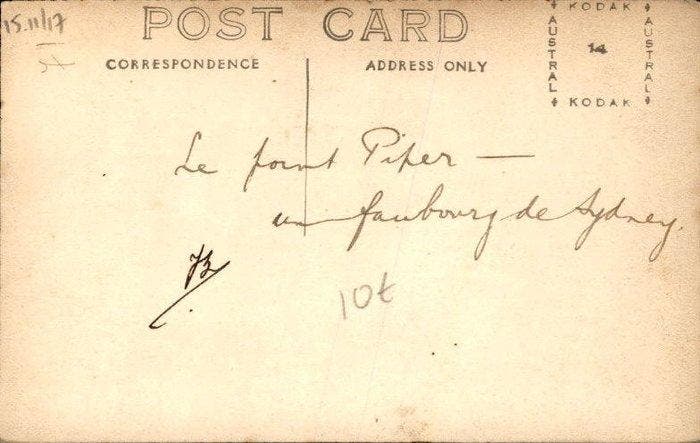 15.11/17
POST CARD
CORRESPONDENCE
ADDRESS ONLY
KODAK
AUSTRAL
14
AUSTRAL
KODAK
Le point Piper —
un faubourg de Sydney.
10t